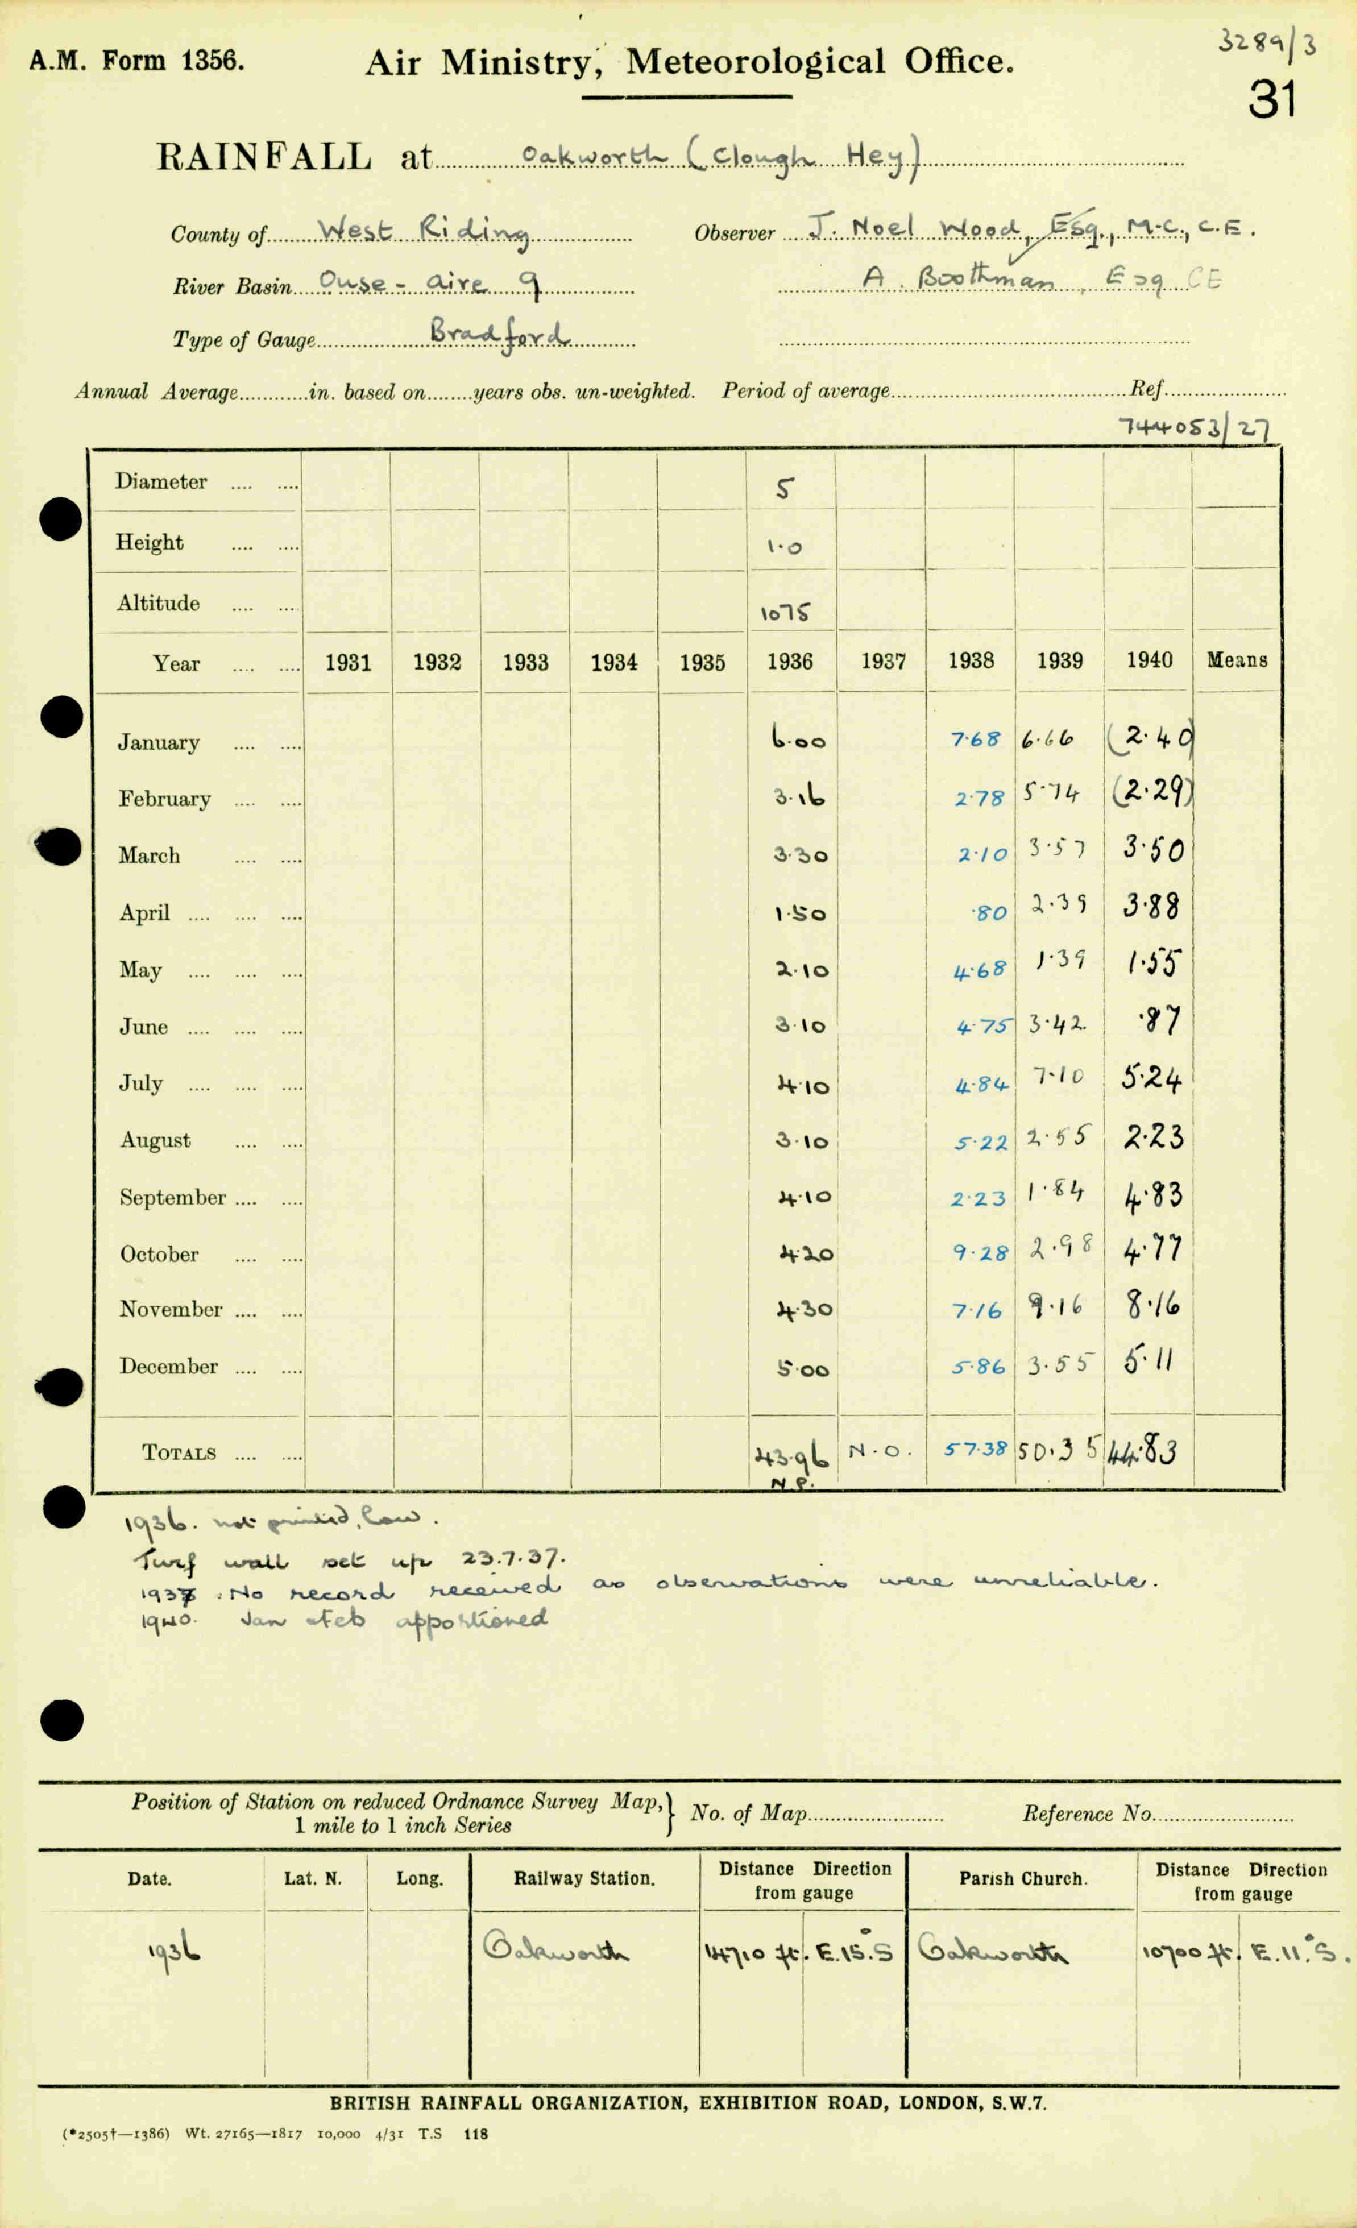 3289/3
A.M. Form 1356. Air Ministry, Meteorological Office.
31
RAINFALL at Oakworth (Clough Hey)
County of West Riding Observer J. Noel Wood, Esq., M.C., C.E.
River Basin Ouse - Aire 9 A. Boothman, Esq CE
Type of Gauge Bradford
Annual Average in. based on years obs. un-weighted. Period of average Ref.
744053/27
Diameter .... .... 5
Height .... .... 1.0
Altitude .... .... 1075
Year .... .... 1931 1932 1933 1934 1935 1936 1937 1938 1939 1940 Means
January .... .... 6.00 7.68 6.66 (2.40)
February .... .... 3.16 2.78 5.74 (2.29)
March .... .... 3.30 2.10 3.57 3.50
April .... .... .... 1.50 .80 2.39 3.88
May .... .... .... 2.10 4.68 1.39 1.55
June .... .... .... 3.10 4.75 3.42 .87
July .... .... .... 4.10 4.84 7.10 5.24
August .... .... 3.10 5.22 2.55 2.23
September .... .... 4.10 2.23 1.84 4.83
October .... .... 4.20 9.28 2.98 4.77
November .... .... 4.30 7.16 9.16 8.16
December .... .... 5.00 5.86 3.55 5.11
TOTALS .... .... 43.96 N.O. 57.38 50.35 44.83
N.P.
1936. not printed, low.
Turf wall set up 23.7.37.
1937. No record received as observations were unreliable.
1940. Jan & Feb apportioned
Position of Station on reduced Ordnance Survey Map, } No. of Map Reference No.
1 mile to 1 inch Series
Date. Lat. N. Long. Railway Station. Distance Direction from gauge Parish Church. Distance Direction from gauge
1936 Oakworth 14710 ft. E.15°.S Oakworth 10700 ft. E.11°.S.
BRITISH RAINFALL ORGANIZATION, EXHIBITION ROAD, LONDON, S.W.7.
(*2505†—1386) Wt. 27165—1817 10,000 4/31 T.S 118